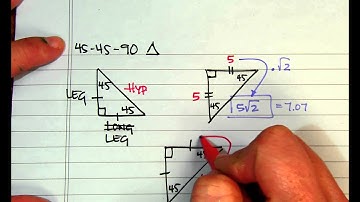 45-45-90 △
45
HYP
LEG
45
LONG
LEG
5
45
·√2
5
45
5√2 = 7.07
45
45